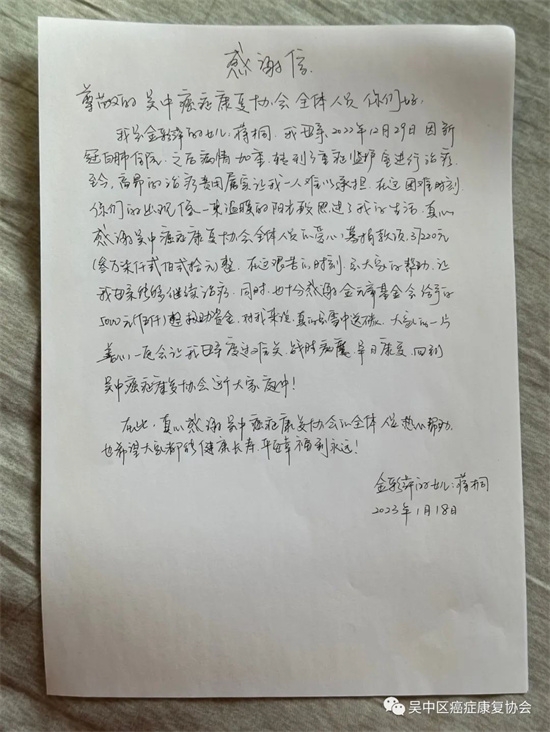 感谢信
尊敬的吴中癌症康复协会全体人员 你们好,
我是金彩萍的女儿蒋桐, 我母亲, 2022年12月29日 因新
冠白肺住院, 之后病情加重, 转到了重症监护室进行治疗,
至今, 高昂的治疗费用属实让我一人难以承担, 在这困难时刻
你们的出现像一束温暖的阳光 照进了我的生活, 真心
感谢吴中癌症康复协会全体人员的爱心 募捐款项, 37220元
(叁万柒仟贰佰贰拾元) 整, 在这艰苦的时刻, 是大家的帮助, 让
我母亲能够继续治疗, 同时, 也十分感谢 基金会给予的
5000元(伍仟)整 救助资金, 对我来说, 真的是雪中送碳, 大家的一片
善心一定会让我母亲度过难关, 战胜病魔, 早日康复, 回到
吴中癌症康复协会这个大家庭中!
在此, 真心感谢 吴中癌症康复协会的全体 热心帮助,
也希望大家都能健康长寿, 平安幸福到永远!
金彩萍的女儿: 蒋桐
2023年1月18日
吴中区癌症康复协会